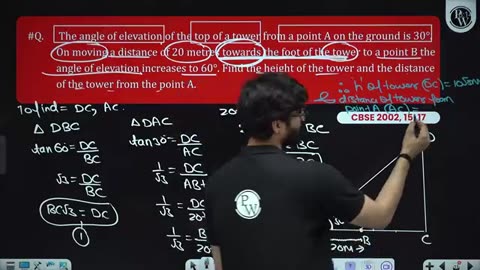 #Q. The angle of elevation of the top of a tower from a point A on the ground is 30°.
On moving a distance of 20 metres towards the foot of the tower to a point B the
angle of elevation increases to 60°. Find the height of the tower and the distance
of the tower from the point A.
∴ h of tower (DC) = 10√3m
& distance of tower from
point A (AC) =
CBSE 2002, 15, 17
To find = DC, AC.
Δ DBC
tan 60 = DC/BC
√3 = DC/BC
BC√3 = DC
1
Δ DAC
tan 30° = DC
AB+
1/√3 = DC
20
1/√3 = B
20
20
BC
D
20m
B
C
PW